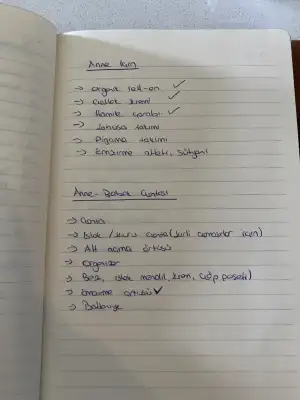 Anne için
→ Organik roll-on ✓
→ Çatlak kremi ✓
→ Hamile çorabı ✓
→ Lohusa takımı
→ Pijama takımı
→ Emzirme atleti, sütyeni
Anne-Bebek Çantası
→ Çanta
→ Islak / kuru çanta (kirli çamaşırlar için)
→ Alt açma örtüsü
→ Organizer
→ Bez, ıslak mendil, krem, çöp poşeti)
→ Emzirme örtüsü ✓
→ Battaniye